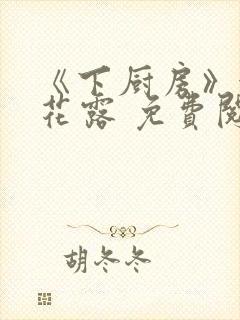 《下厨房》
花露 免費閱
胡冬冬